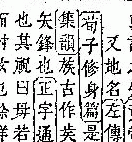 又地名左傳
荀子修身篇是
集韻族古作
矢鋒也正字通
也其覘曰毋若